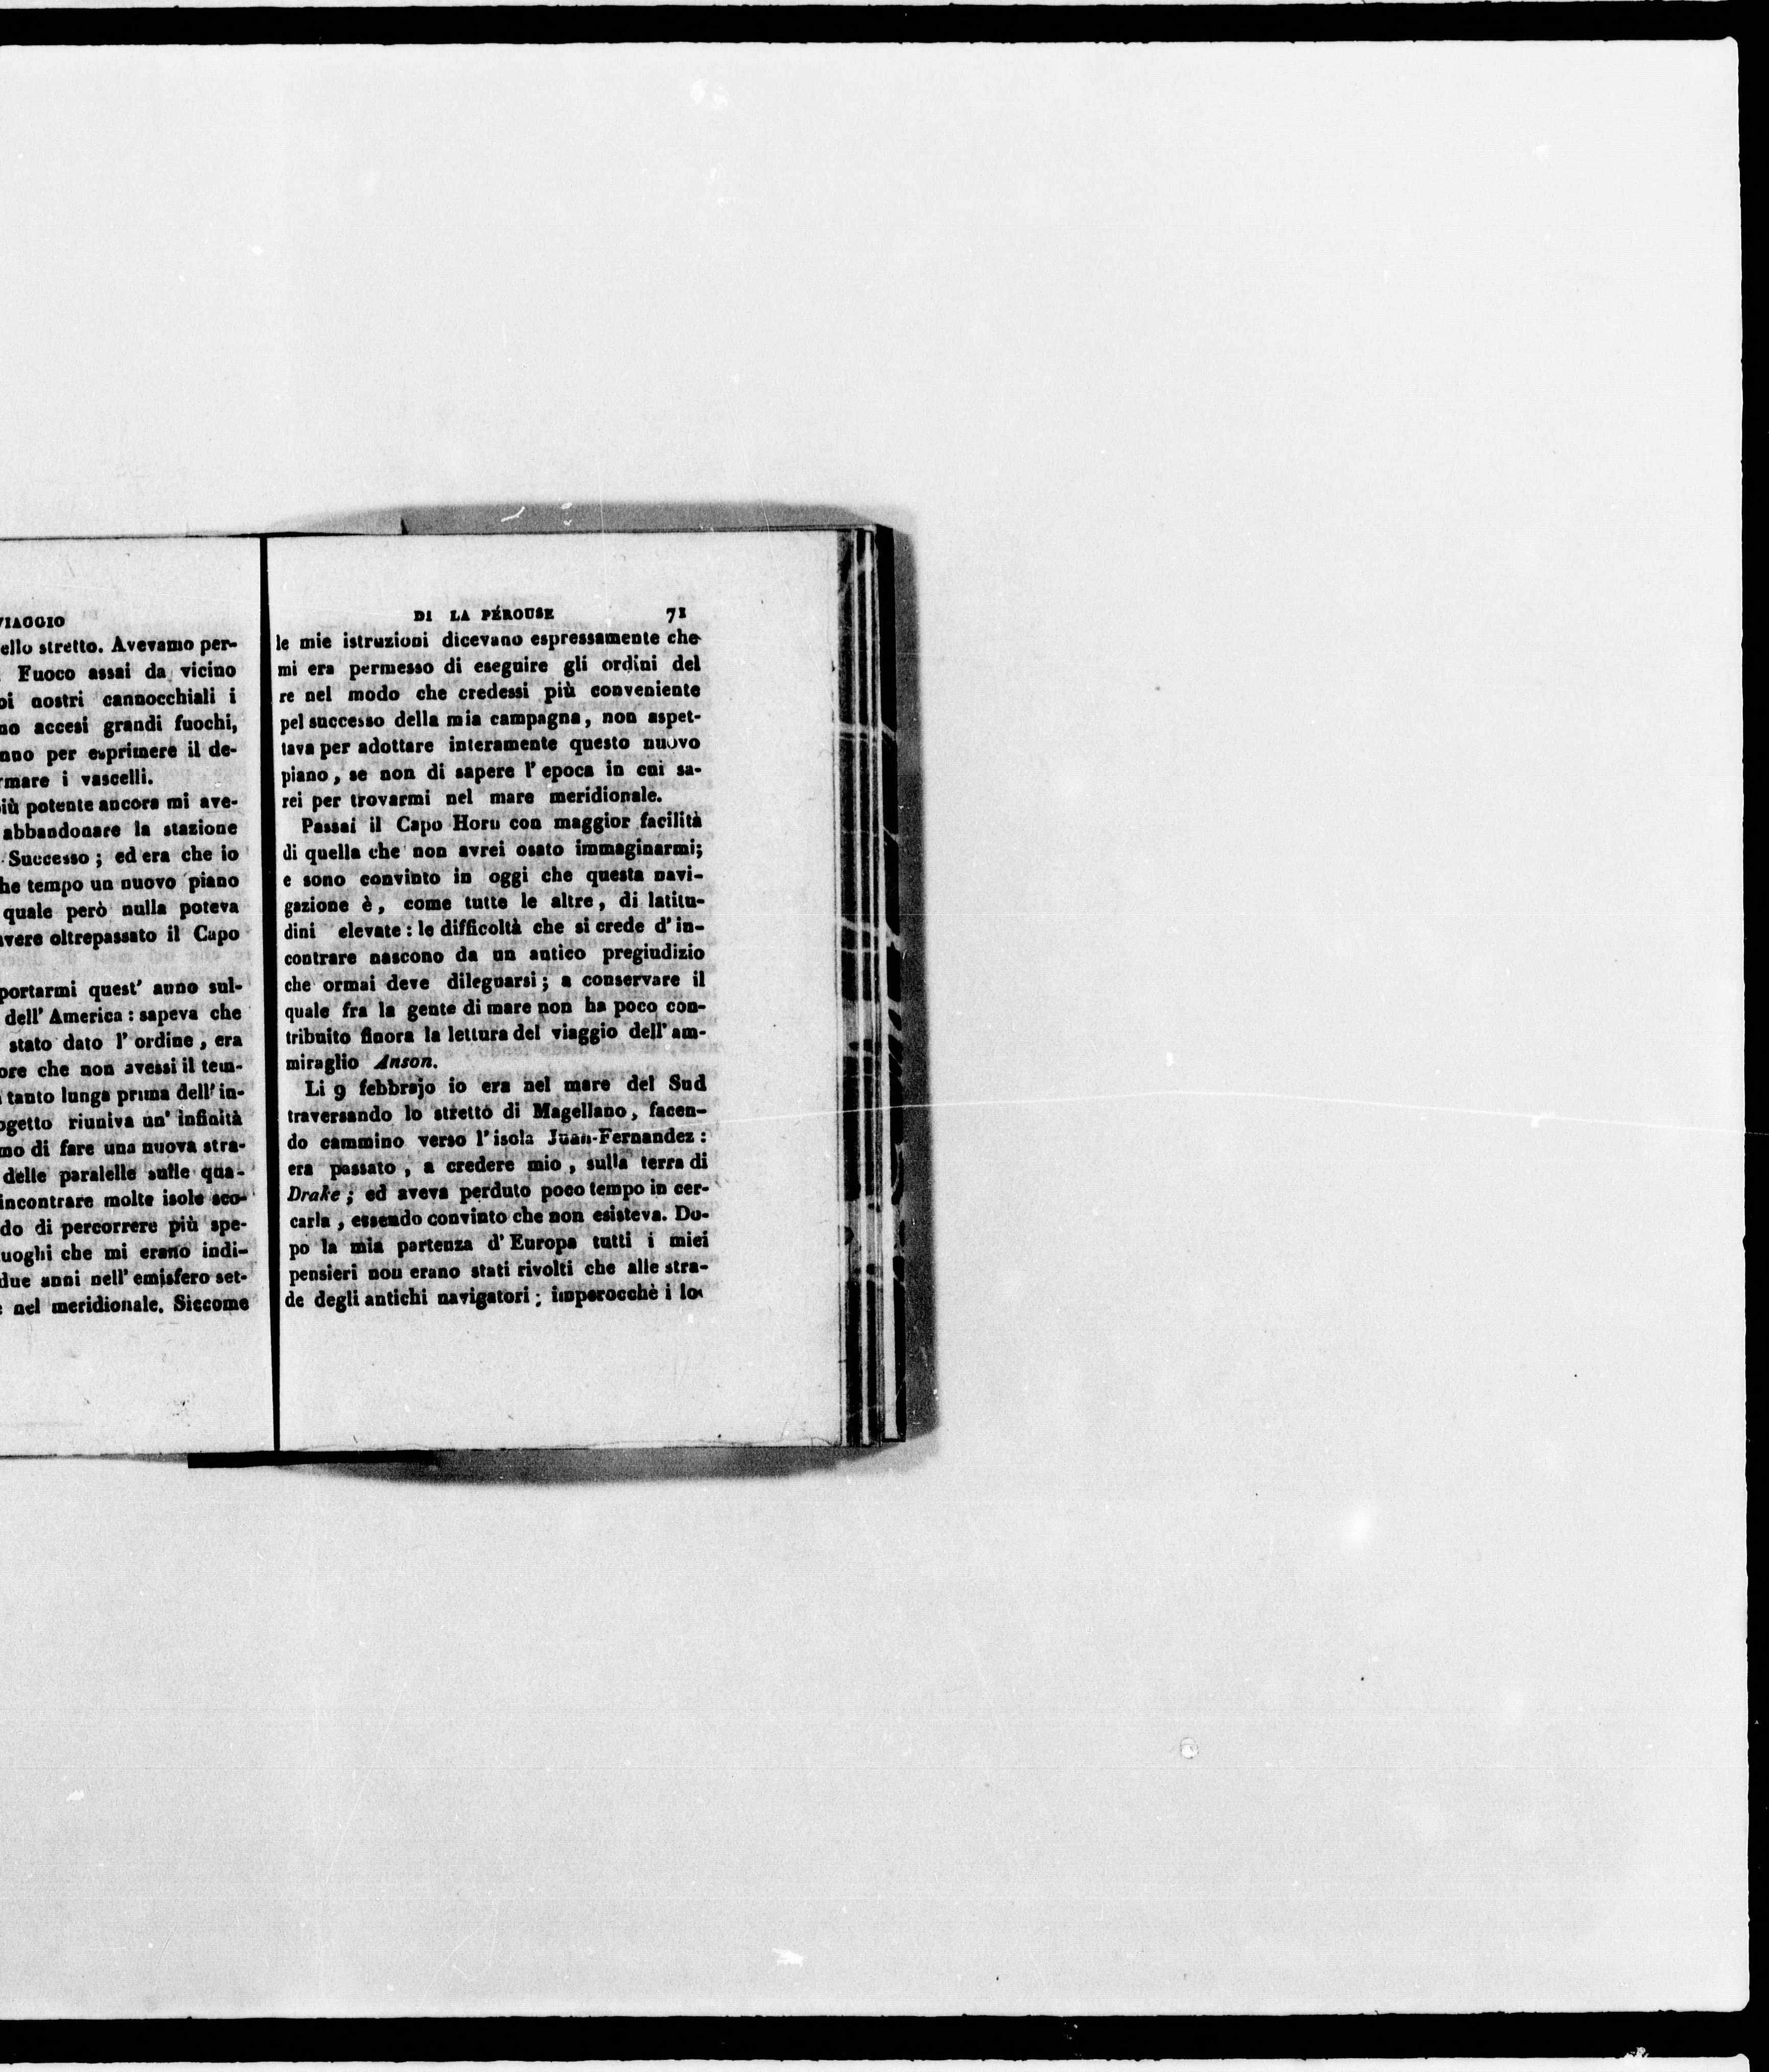 VIAGGIO
ello stretto. Avevamo per-
Fuoco assai da vicino
oi nostri cannocchiali i
no accesi grandi fuochi,
nno per esprimere il de-
rmare i vascelli.
iù potente ancora mi ave-
abbandonare la stazione
Successo; ed era che io
he tempo un nuovo piano
quale però nulla poteva
vere oltrepassato il Capo
portarmi quest' anno sul-
dell' America: sapeva che
stato dato l' ordine, era
ore che non avessi il tem-
tanto lunga prima dell' in-
ogetto riuniva un' infinità
mo di fare una nuova stra-
delle paralelle sulle qua-
incontrare molte isole sco-
do di percorrere più spe-
uoghi che mi erano indi-
due anni nell' emisfero set-
e nel meridionale. Siccome
DI LA PÉROUSE 71
le mie istruzioni dicevano espressamente che
mi era permesso di eseguire gli ordini del
re nel modo che credessi più conveniente
pel successo della mia campagna, non aspet-
tava per adottare interamente questo nuovo
piano, se non di sapere l' epoca in cui sa-
rei per trovarmi nel mare meridionale.
Passai il Capo Horn con maggior facilità
di quella che non avrei osato immaginarmi;
e sono convinto in oggi che questa navi-
gazione è, come tutte le altre, di latitu-
dini elevate: le difficoltà che si crede d' in-
contrare nascono da un antico pregiudizio
che ormai deve dileguarsi; a conservare il
quale fra la gente di mare non ha poco con-
tribuito finora la lettura del viaggio dell' am-
miraglio Anson.
Li 9 febbrajo io era nel mare del Sud
traversando lo stretto di Magellano, facen-
do cammino verso l' isola Jüan-Fernandez:
era passato, a credere mio, sulla terra di
Drake; ed aveva perduto poco tempo in cer-
carla, essendo convinto che non esisteva. Do-
po la mia partenza d' Europa tutti i miei
pensieri non erano stati rivolti che alle stra-
de degli antichi navigatori; imperocchè i lo-